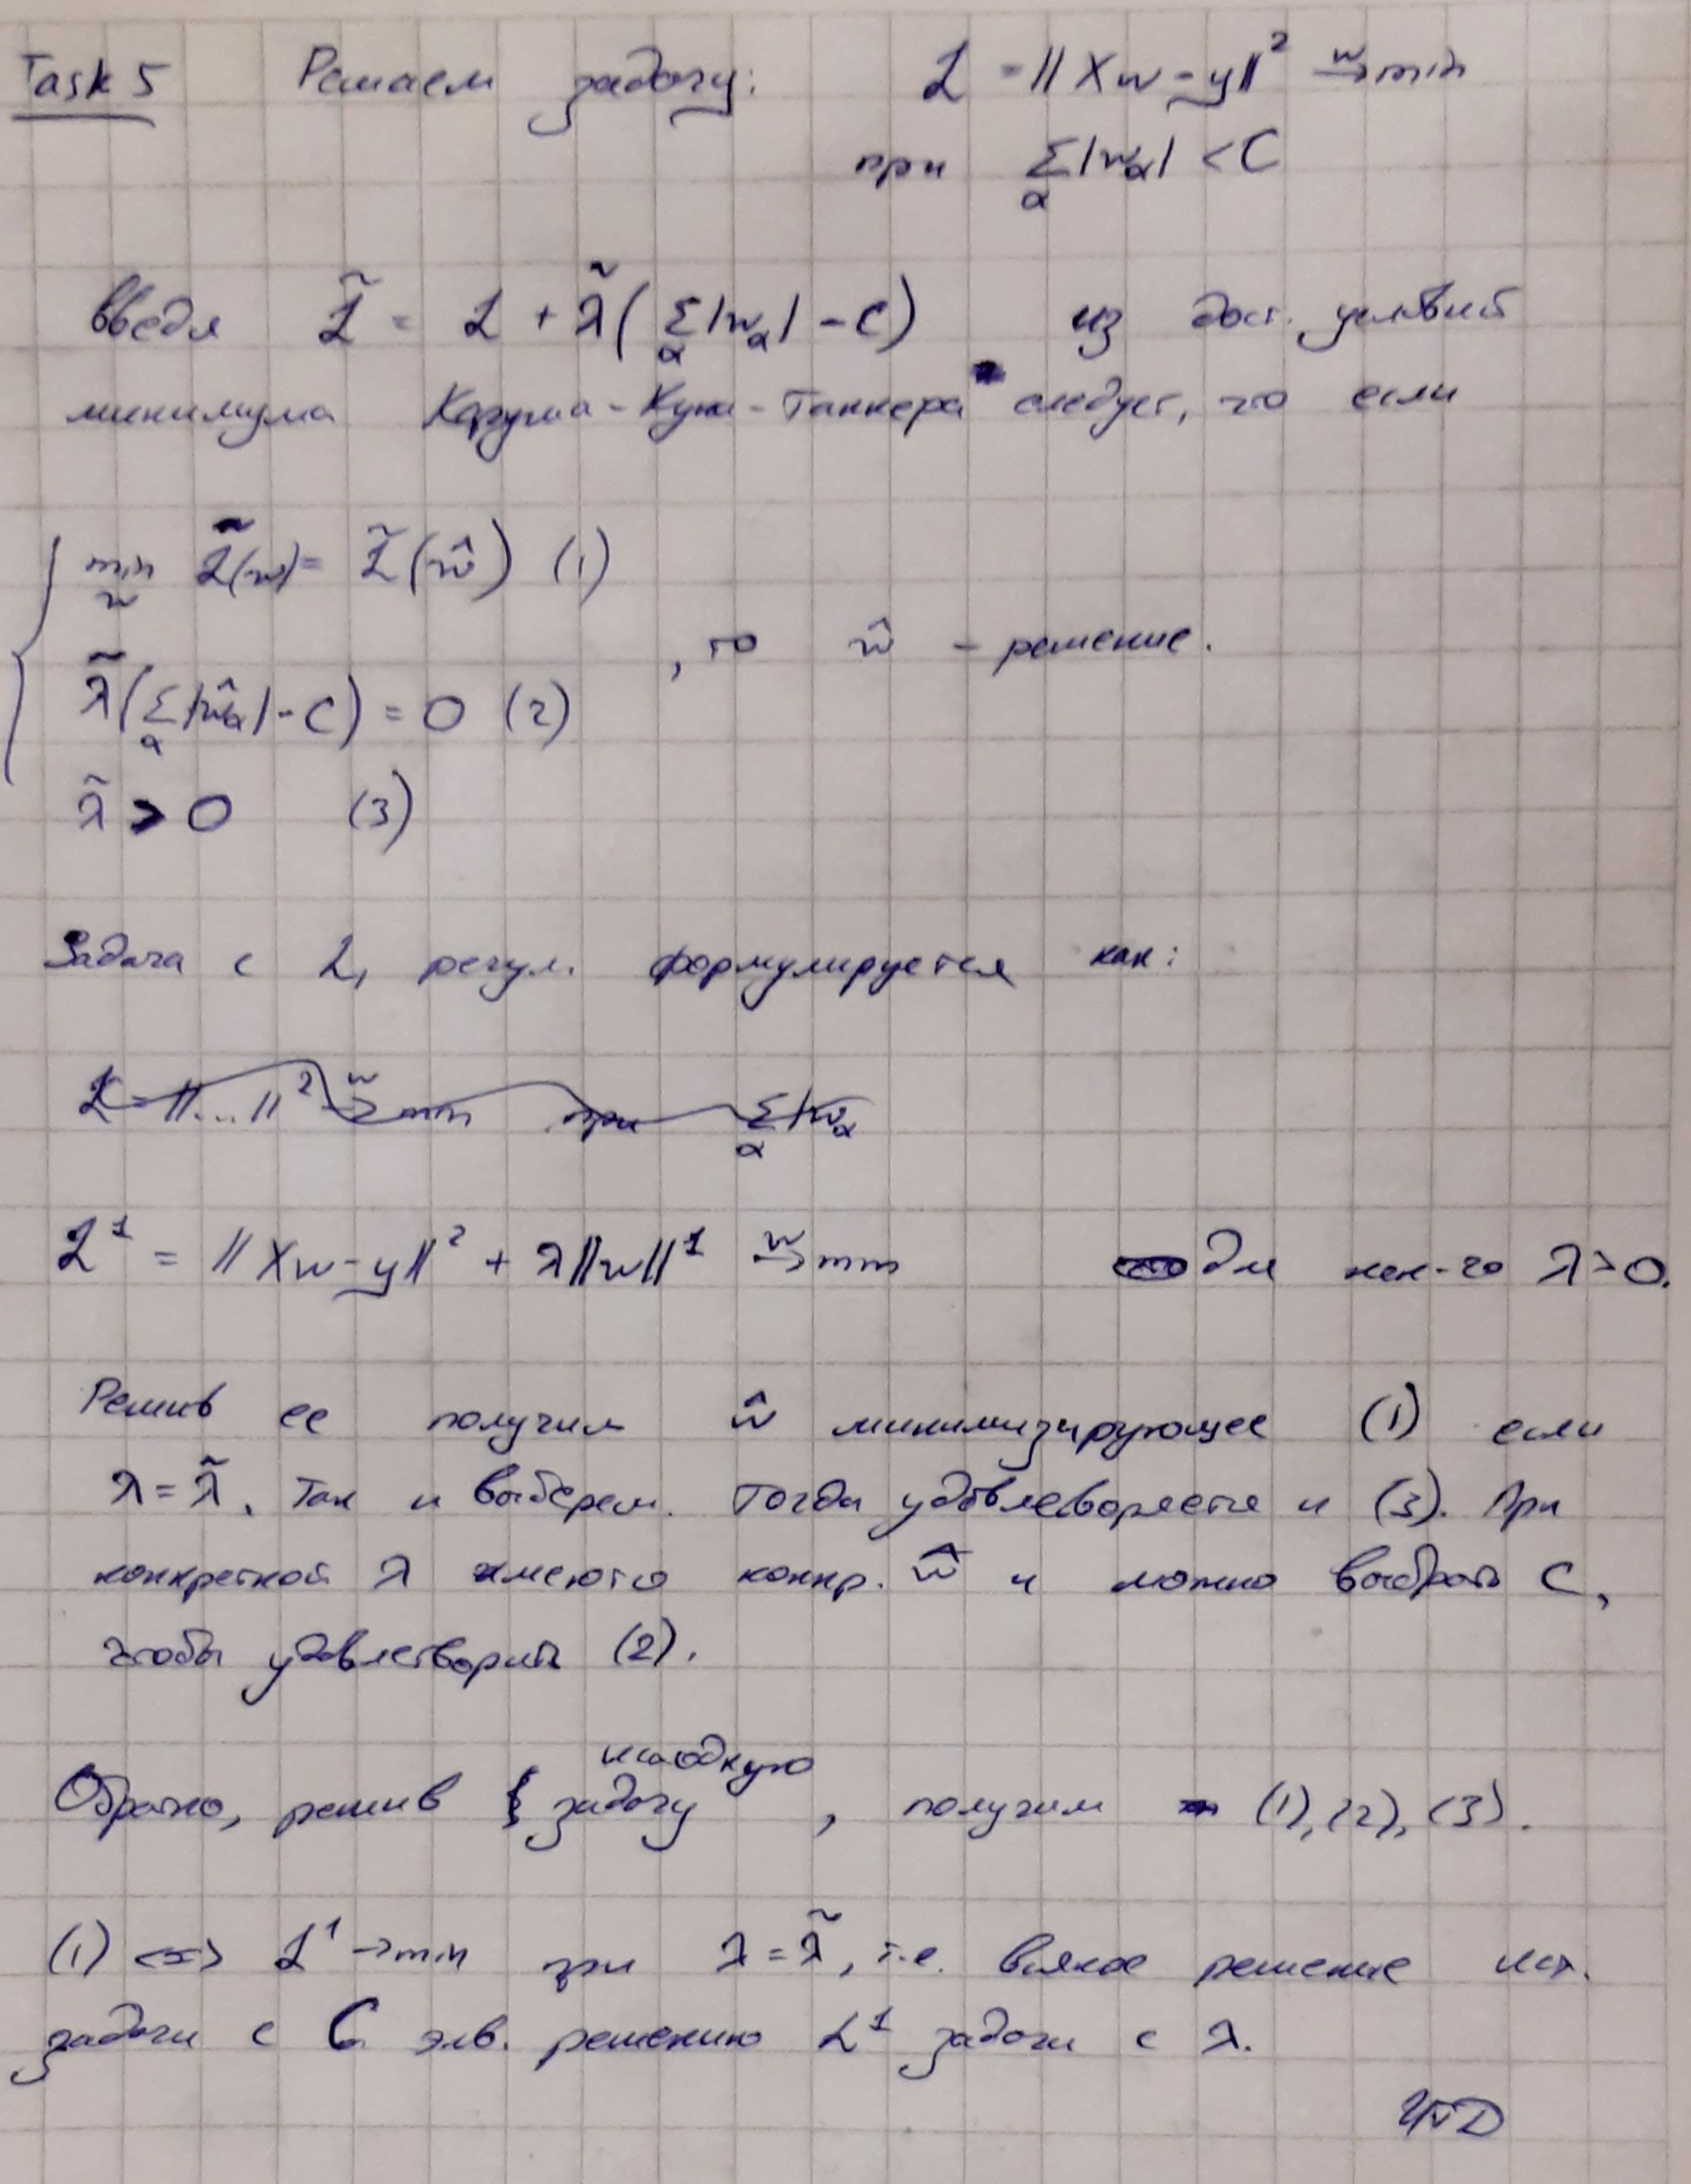 Task 5 Решаем задачу: L = ||Xw - y||² →^w min
при Σ_α |w_α| < C
Введя L̃ = L + λ̃(Σ_α |w_α| - C) из дост. условий
минимума Каруша-Куна-Таккера следует, что если
min_w L̃(w) = L̃(ŵ) (1)
, то ŵ - решение.
λ̃(Σ_α |ŵ_α| - C) = 0 (2)
λ̃ > 0 (3)
Задача с L₁ регул. формулируется как:
L = ||...||² →^w min при Σ_α |w_α
L¹ = ||Xw - y||² + λ||w||¹ →^w min для нек-го λ > 0.
Решив ее получим ŵ минимизирующее (1) если
λ = λ̃. Так и выберем. Тогда удовлетворяется и (3). При
конкретной λ имеются конкр. ŵ и можно выбрать C,
чтобы удовлетворить (2).
Обратно, решив исходную задачу, получим (1), (2), (3).
(1) <=> L¹ → min при λ = λ̃, т.е. всякое решение исх.
задачи с C экв. решению L¹ задачи с λ.
ЧТД